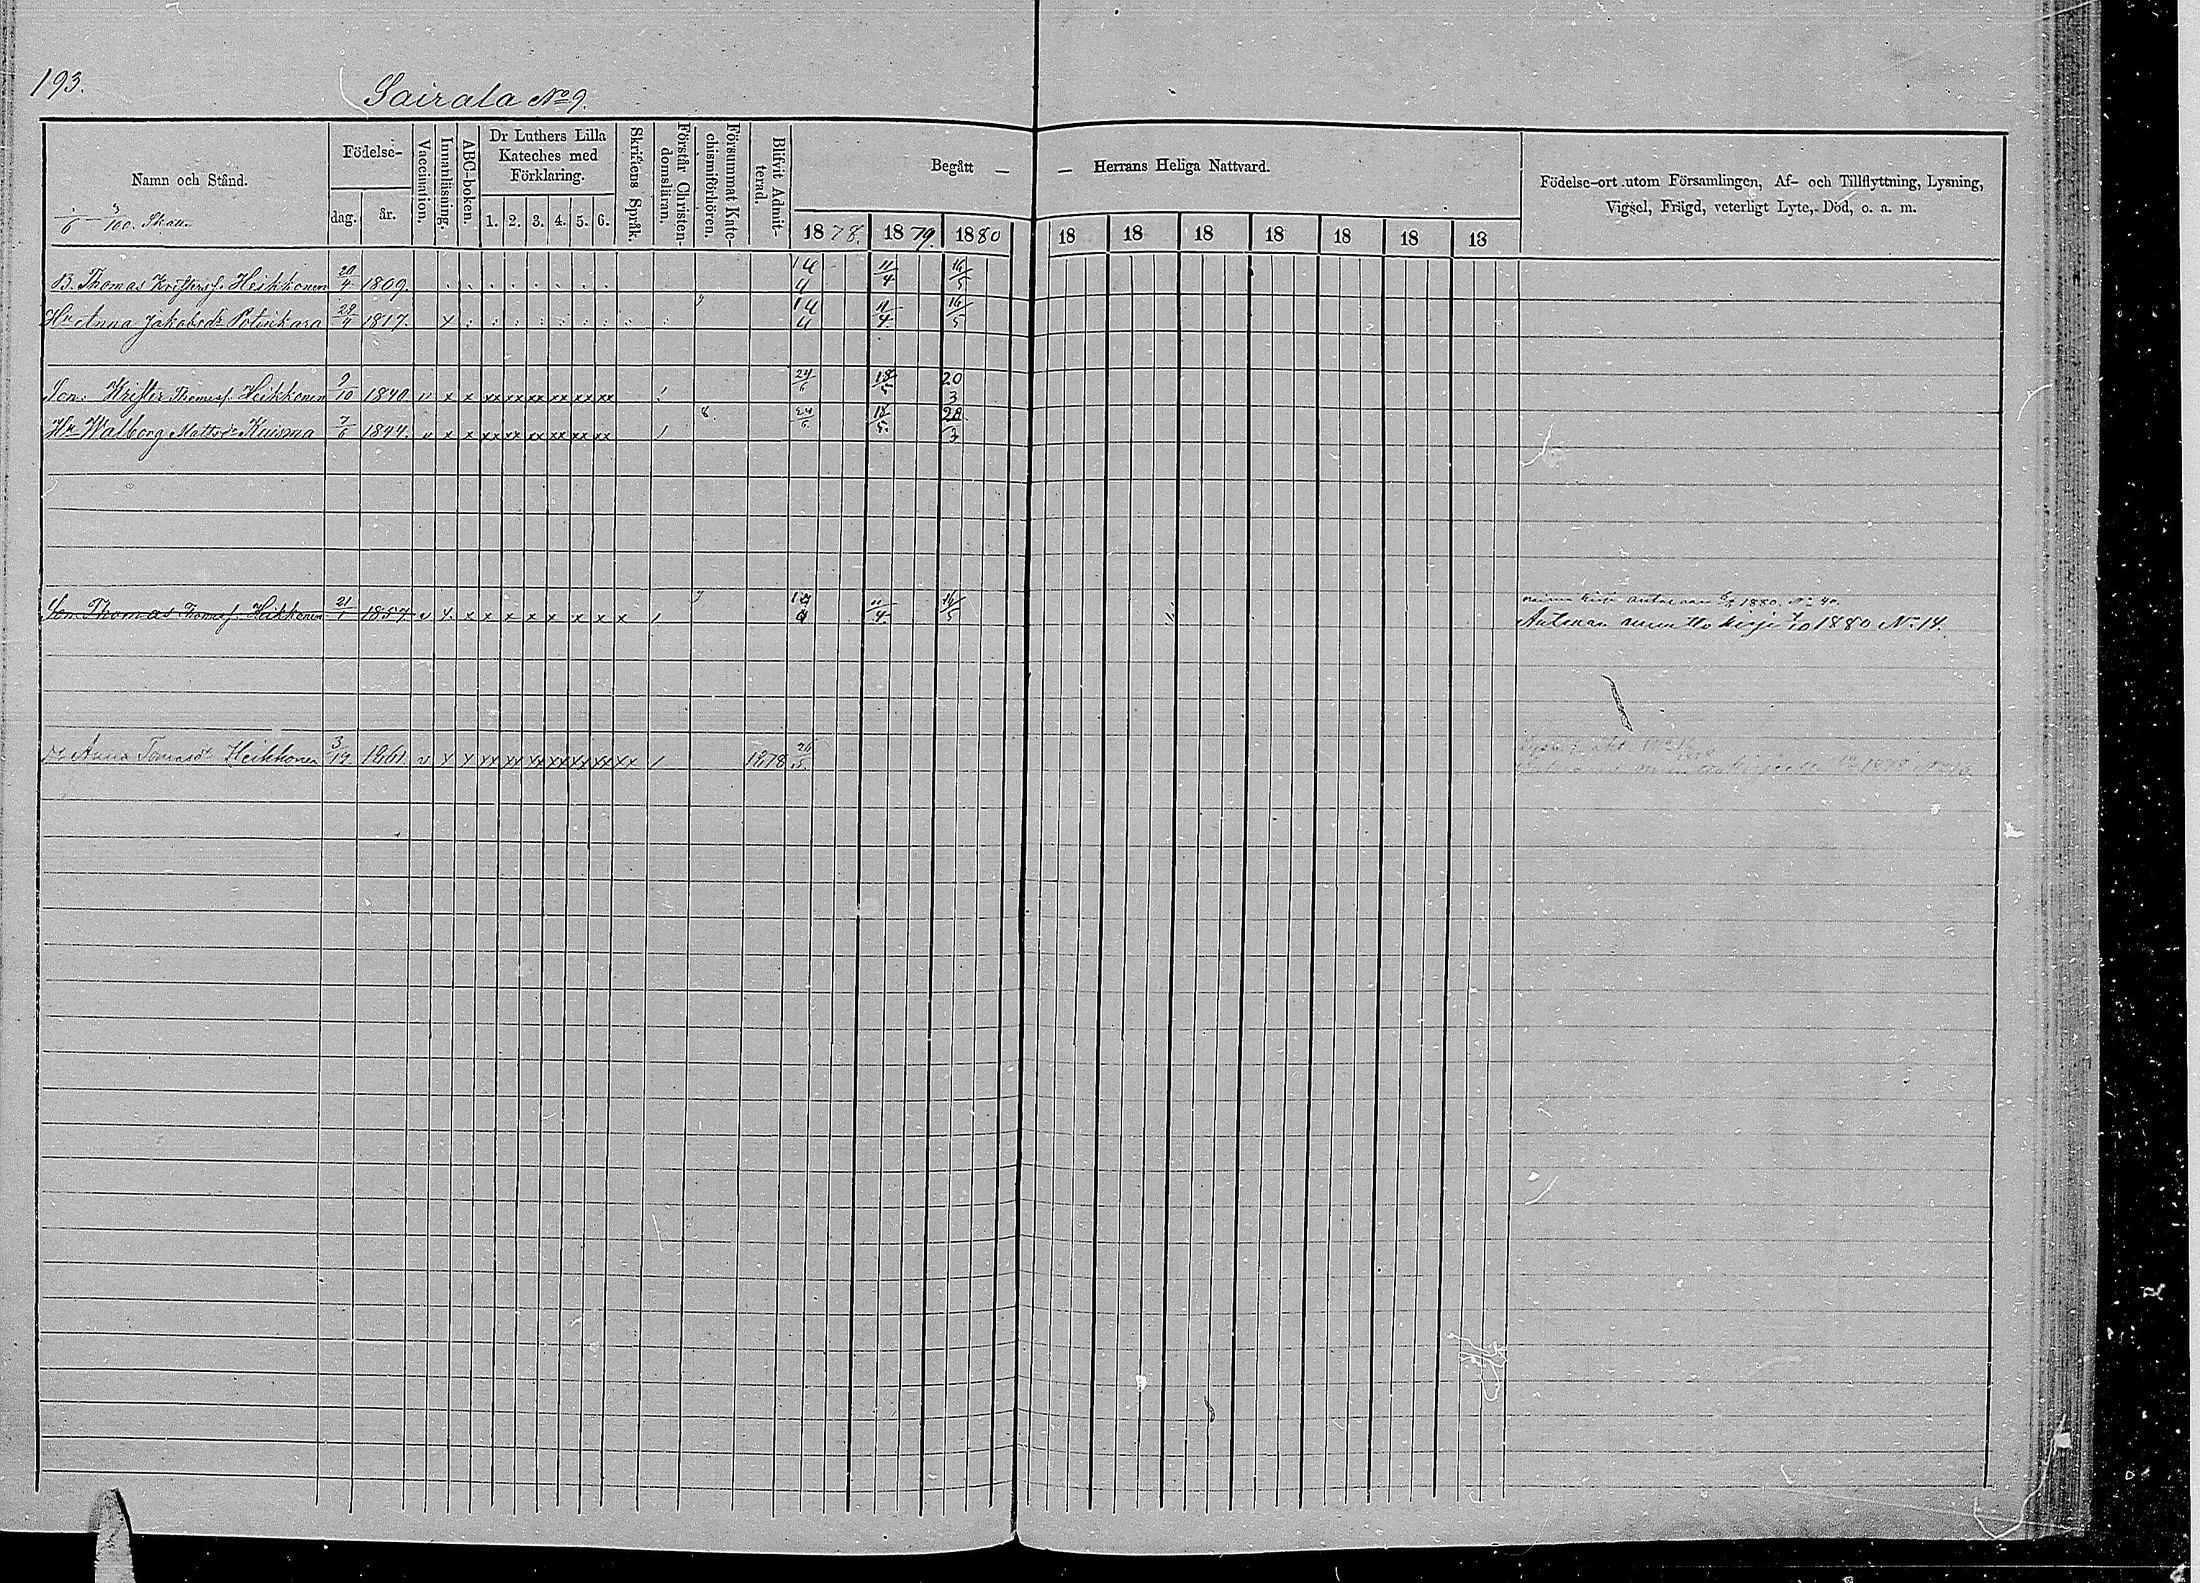 193.
Sairala No 9.
Namn och Stånd.
Födelse-
dag. år.
Vaccination.
Innanläsning.
ABC-boken.
Dr Luthers Lilla
Kateches med
Förklaring.
1. 2. 3. 4. 5. 6.
Skriftens Språk.
Förstår Christen-
domsläran.
Försummat Kate-
chismiförhören.
Blifvit Admit-
terad.
Begått — — Herrans Heliga Nattvard.
1878. 1879. 1880 18 18 18 18 18 18 18
Födelse-ort utom Församlingen, Af- och Tillflyttning, Lysning,
Vigsel, Frägd, veterligt Lyte, Död, o. a. m.
B. Thomas Kristersf. Heikkonen 20/4 1809. 14/4 11/4 16/5
Hu Anna Jakobsdr Potinkara 28/4 1817. x 14/4 11/4 16/5
Son. Krister Thomasf. Heikkonen 9/10 1840 v x x xx xx xx xx xx xx 24/6 18/5 20/3
Hu Walborg Mattsdr Kuisma 7/6 1844. v x x xx xx xx xx xx xx 8. 24/6 18/5 28/3
Son Thomas Thomasf. Heikkonen 21/1 1857 v x x x x x x x x x 11/4 16/5
1880. No 40.
1880 No 14.
Dr Anna Tomasdr Heikkonen 1861 v x x xx xx xx xx xx xx xx 1878 26/5